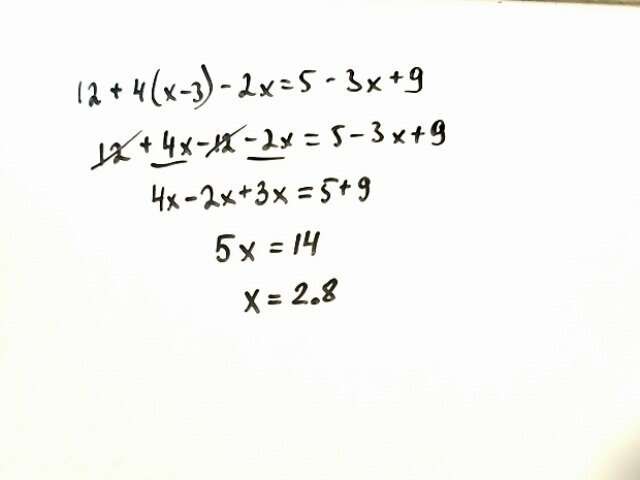 12 + 4(x-3) - 2x = 5 - 3x + 9
12 + 4x - 12 - 2x = 5 - 3x + 9
4x - 2x + 3x = 5 + 9
5x = 14
x = 2.8